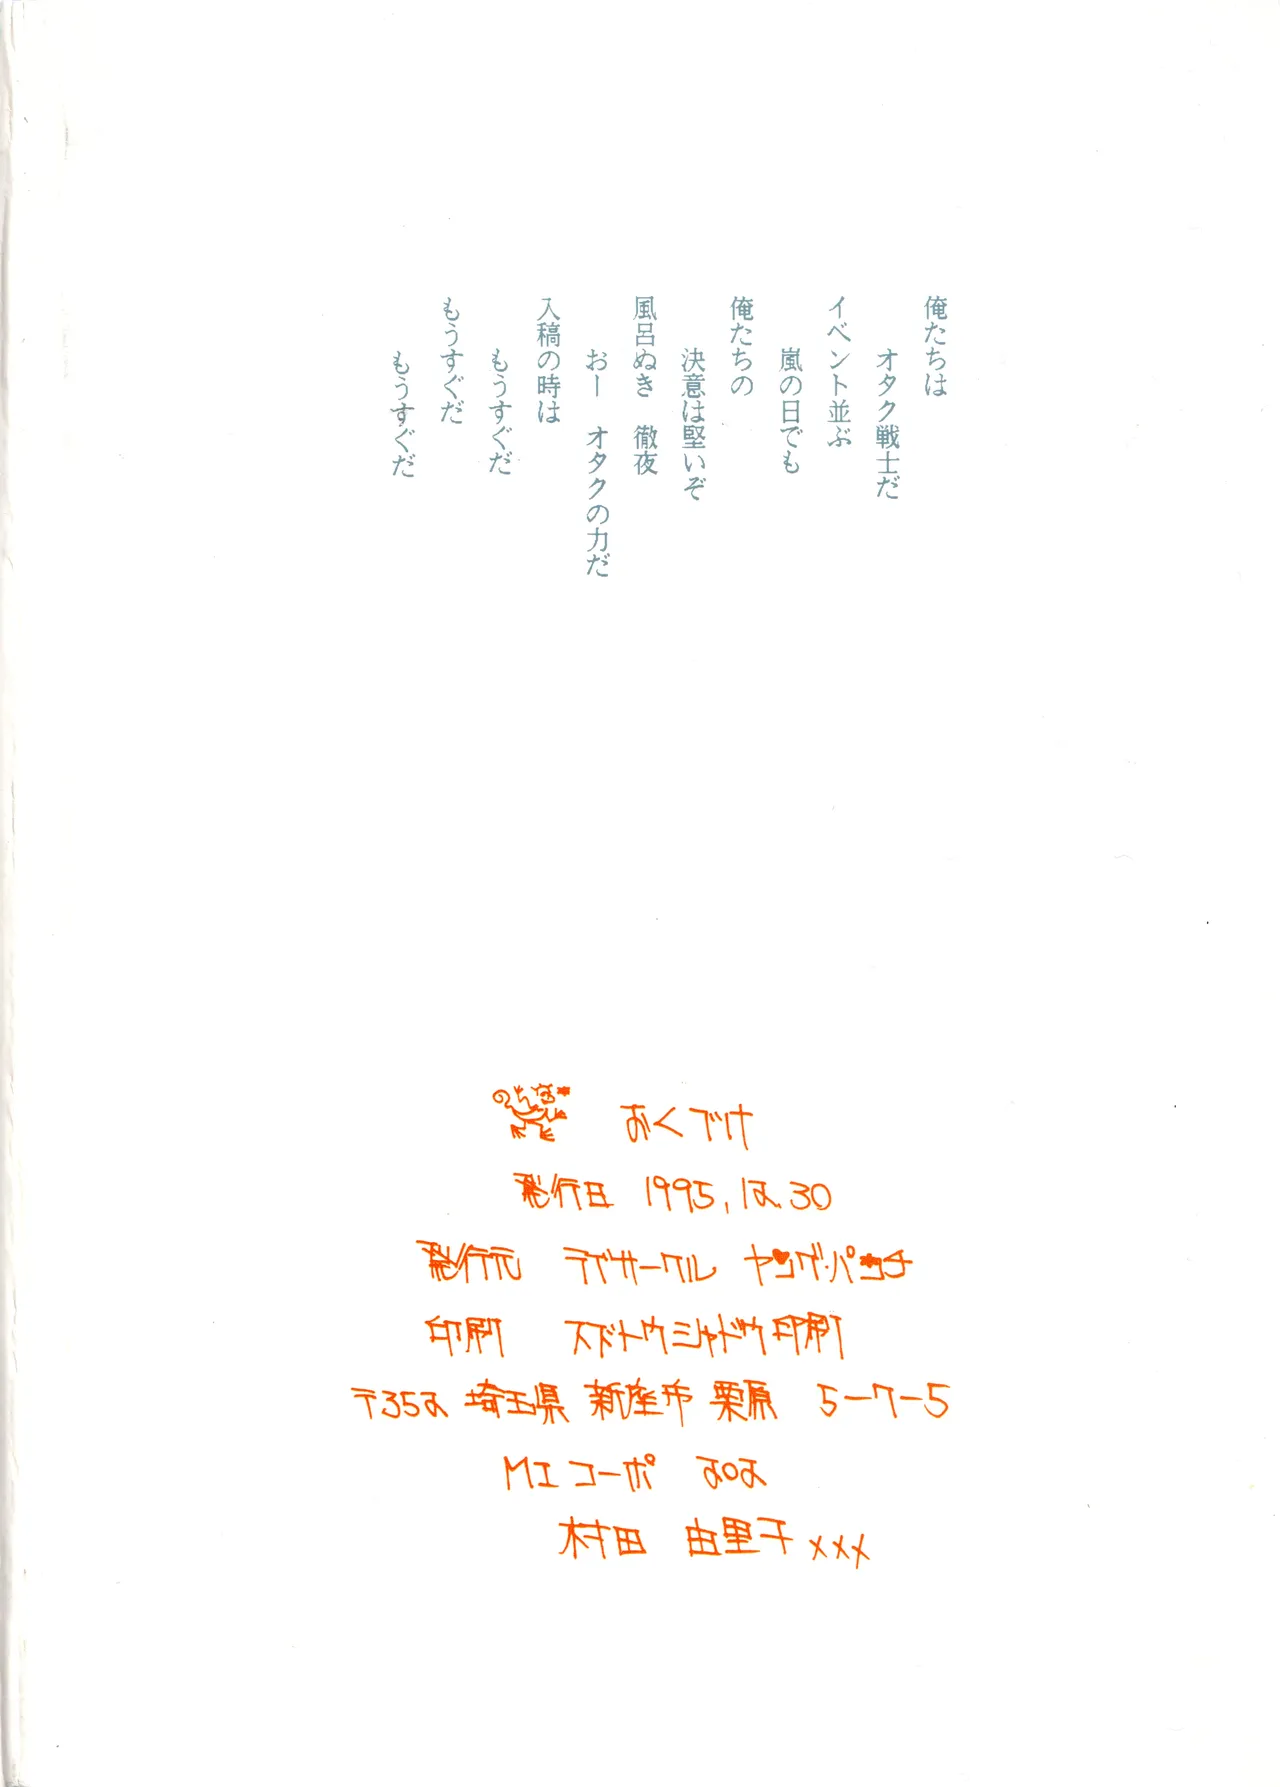 俺たちは
オタク戦士だ
イベント並ぶ
嵐の日でも
俺たちの
決意は堅いぞ
風呂ぬき　徹夜
おー　オタクの力だ
入稿の時は
もうすぐだ
もうすぐだ
もうすぐだ
おくづけ
発行日 1995.12.30
発行元 ラブサークル ヤング・パンチ
印刷 スドトウシャドウ印刷
〒352 埼玉県 新座市 栗原 5-7-5
MI コーポ 202
村田 由里子 xxx